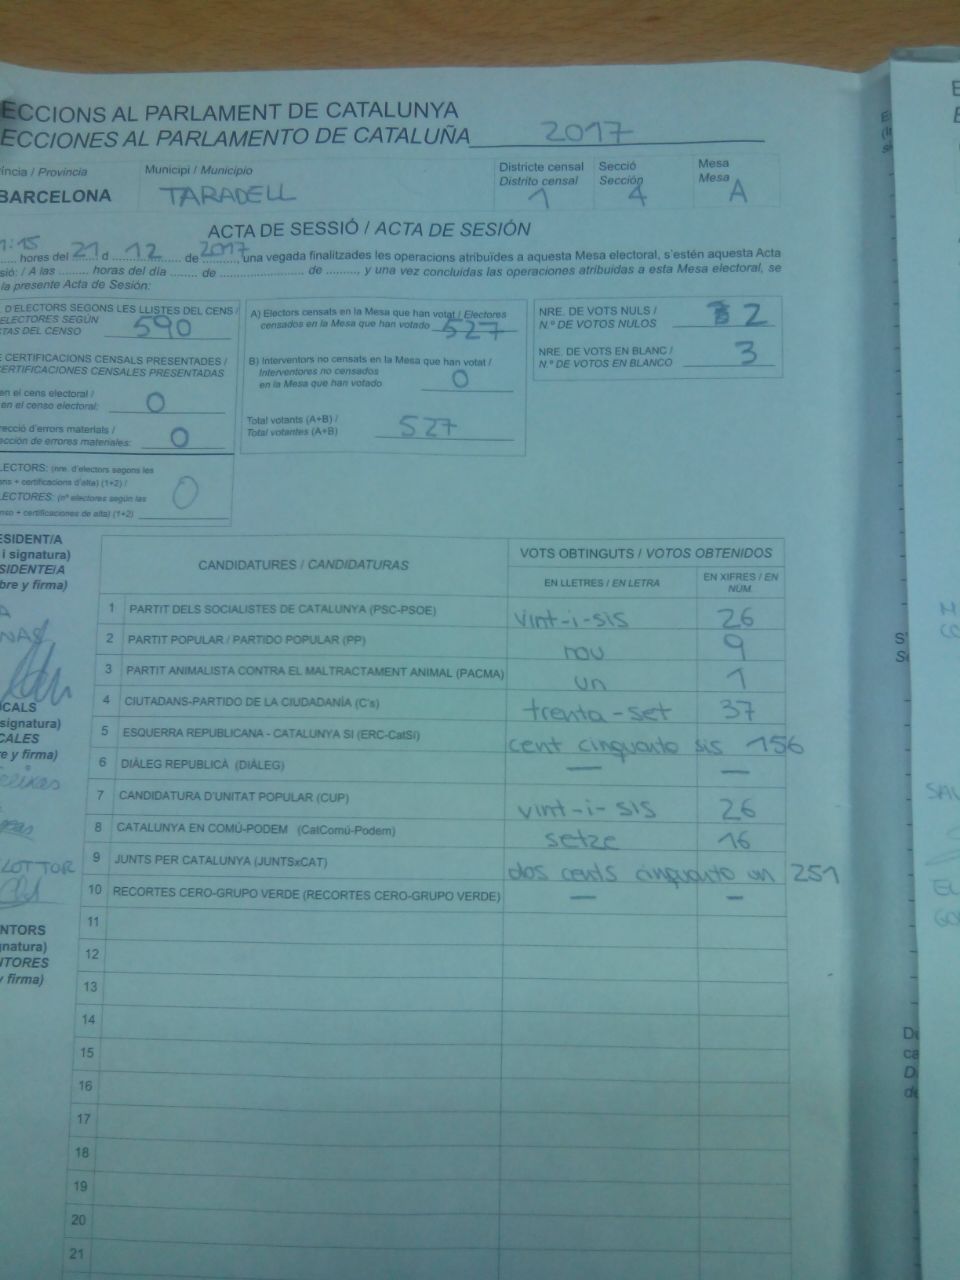 ECCIONS AL PARLAMENT DE CATALUNYA
ECCIONES AL PARLAMENTO DE CATALUÑA 2017
íncia / Provincia
BARCELONA
Municipi / Municipio
TARADELL
Districte censal
Distrito censal
1
Secció
Sección
4
Mesa
Mesa
A
ACTA DE SESSIÓ / ACTA DE SESIÓN
1:15 hores del 21 d 12 de 2017, una vegada finalitzades les operacions atribuïdes a aquesta Mesa electoral, s'estén aquesta Acta
sió: / A las ........ horas del día ....... de ....................... de ........, y una vez concluidas las operaciones atribuidas a esta Mesa electoral, se
la presente Acta de Sesión:
D'ELECTORS SEGONS LES LLISTES DEL CENS /
ELECTORES SEGÚN
TAS DEL CENSO 590
CERTIFICACIONS CENSALS PRESENTADES /
CERTIFICACIONES CENSALES PRESENTADAS
en el cens electoral /
en el censo electoral: 0
recció d'errors materials /
ección de errores materiales: 0
LECTORS: (nre. d'electors segons les
ens + certificacions d'alta) (1+2) /
LECTORES: (nº electores según las
enso + certificaciones de alta) (1+2) 0
A) Electors censats en la Mesa que han votat / Electores
censados en la Mesa que han votado 527
B) Interventors no censats en la Mesa que han votat /
Interventores no censados
en la Mesa que han votado 0
Total votants (A+B) /
Total votantes (A+B) 527
NRE. DE VOTS NULS /
N.º DE VOTOS NULOS 2
NRE. DE VOTS EN BLANC /
N.º DE VOTOS EN BLANCO 3
ESIDENT/A
i signatura)
SIDENTE/A
bre y firma)
CALS
signatura)
CALES
e y firma)
NTORS
gnatura)
ITORES
y firma)
CANDIDATURES / CANDIDATURAS
VOTS OBTINGUTS / VOTOS OBTENIDOS
EN LLETRES / EN LETRA
EN XIFRES / EN NÚM.
1 PARTIT DELS SOCIALISTES DE CATALUNYA (PSC-PSOE) vint-i-sis 26
2 PARTIT POPULAR / PARTIDO POPULAR (PP) nou 9
3 PARTIT ANIMALISTA CONTRA EL MALTRACTAMENT ANIMAL (PACMA) un 1
4 CIUTADANS-PARTIDO DE LA CIUDADANÍA (C's) trenta-set 37
5 ESQUERRA REPUBLICANA - CATALUNYA SI (ERC-CatSí) cent cinquanta sis 156
6 DIÀLEG REPUBLICÀ (DIÀLEG) — —
7 CANDIDATURA D'UNITAT POPULAR (CUP) vint-i-sis 26
8 CATALUNYA EN COMÚ-PODEM (CatComú-Podem) setze 16
9 JUNTS PER CATALUNYA (JUNTSxCAT) dos cents cinquanta un 251
10 RECORTES CERO-GRUPO VERDE (RECORTES CERO-GRUPO VERDE) — —
11
12
13
14
15
16
17
18
19
20
21